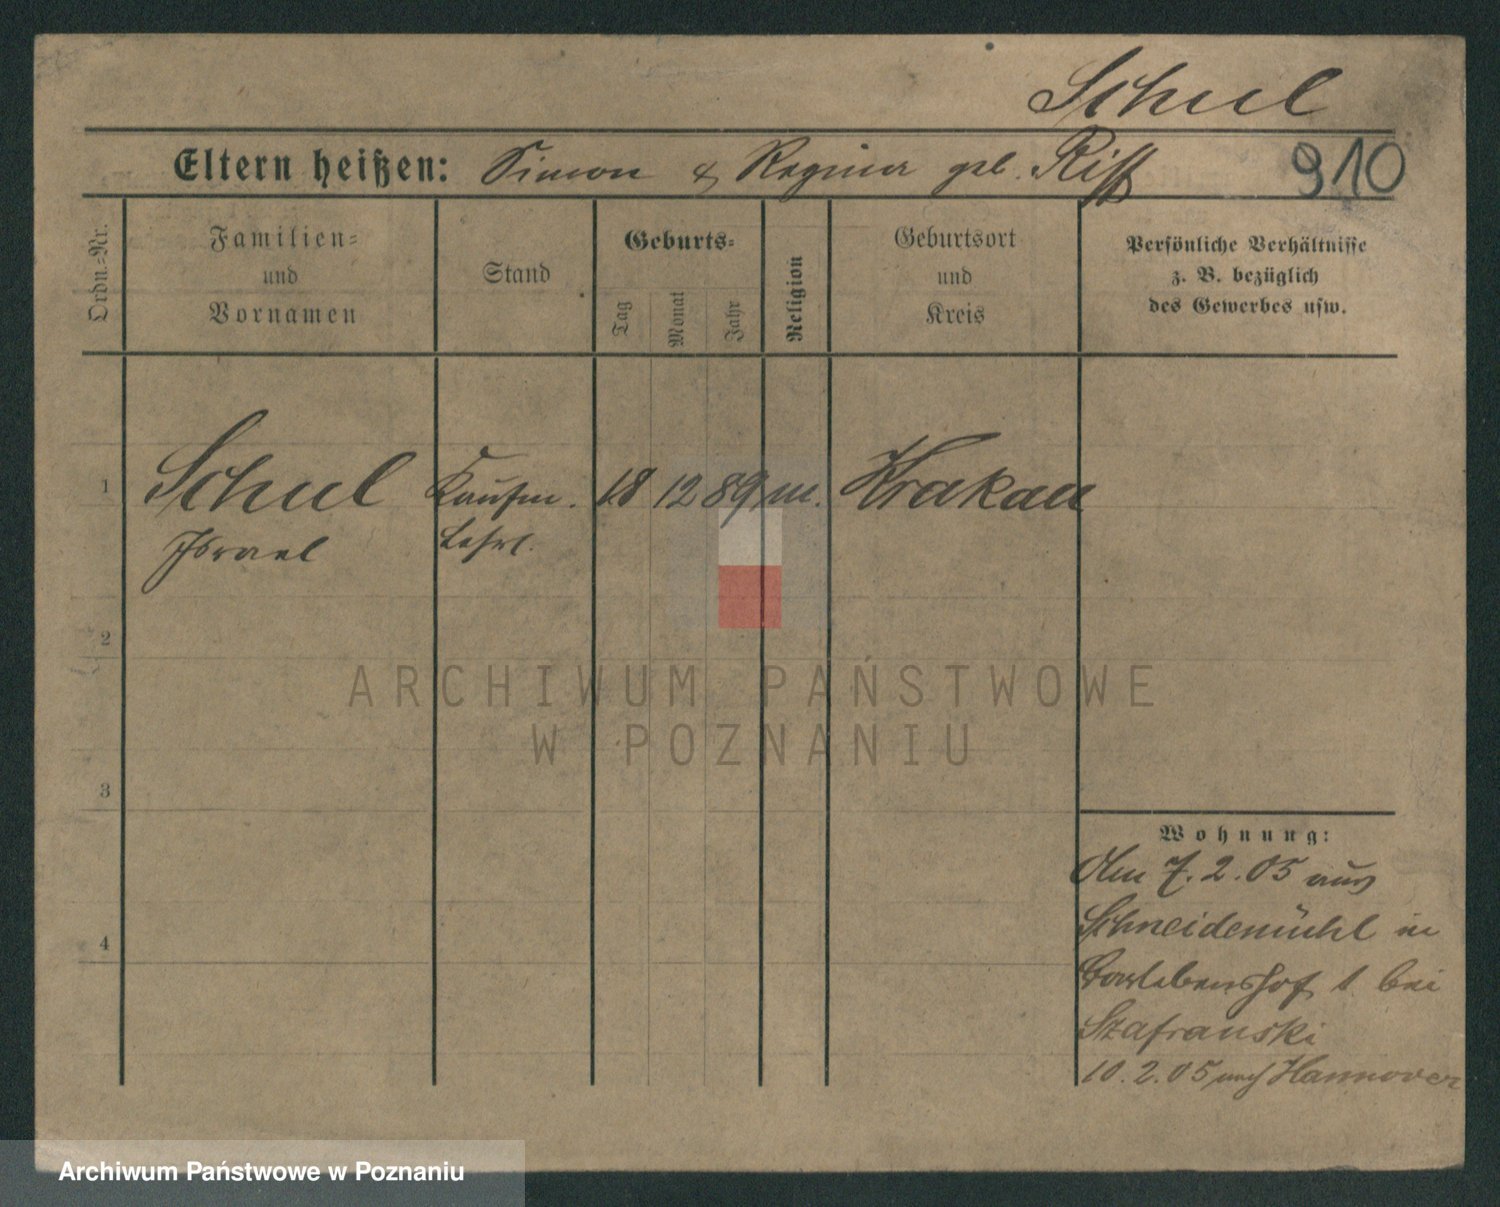 Schul
Eltern heißen: Simon & Regina geb. Riff
910
Ordn.-Nr.
Familien-
und
Vornamen
Stand
Geburts-
Tag
Monat
Jahr
Religion
Geburtsort
und
Kreis
Persönliche Verhältnisse
z. B. bezüglich
des Gewerbes usw.
1 Schul Kaufm. 18 12 89 m. Krakau
Israel Lehrl.
2
3
4
Wohnung:
Am 7.2.05 aus
Schneidemühl in
1 bei
Szafranski
10.2.05 nach Hannover
ARCHIWUM PAŃSTWOWE
W POZNANIU
Archiwum Państwowe w Poznaniu